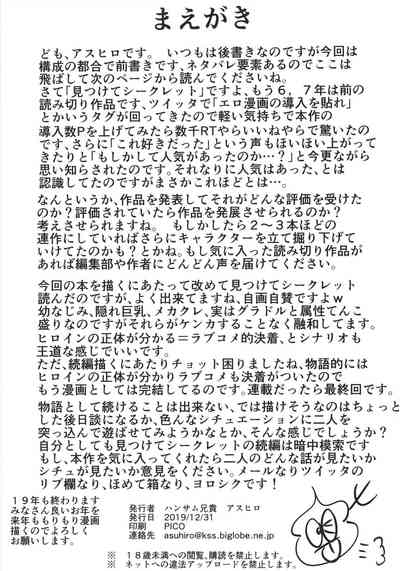 まえがき
ども、アスヒロです。 いつもは後書きなのですが今回は
構成の都合で前書きです、ネタバレ要素あるのでここは
飛ばして次のページから読んでくださいね。
さて「見つけてシークレット」ですよ、もう6，7年は前の
読み切り作品です、ツイッタで「エロ漫画の導入を貼れ」
とかいうタグが回ってきたので軽い気持ちで本作の
導入数Pを上げてみたら数千RTやらいいねやらで驚いたの
です、さらに「これ好きだった」という声もほいほい上がって
きたりと「もしかして人気があったのか…？」と今更ながら
思い知らされたのです。それなりに人気はあった、とは
認識してたのですがまさかこれほどとは…。
なんというか、作品を発表してそれがどんな評価を受けた
のか？評価されていたら作品を発展させられるのか？
考えさせられますね。 もしかしたら2～3本ほどの
連作にしていればさらにキャラクターを立て掘り下げて
いけてたのかも？とかね。もし気に入った読み切り作品が
あれば編集部や作者にどんどん声を届けてください。
今回の本を描くにあたって改めて見つけてシークレット
読んだのですが、よく出来てますね、自画自賛ですよw
幼なじみ、隠れ巨乳、メカクレ、実はグラドルと属性てんこ
盛りなのですがそれらがケンカすることなく融和してます。
ヒロインの正体が分かる＝ラブコメ的決着、とシナリオも
王道な感じでいいです。
ただ、続編描くにあたりチョット困りましたね、物語的には
ヒロインの正体が分かりラブコメも決着がついたので
もう漫画としては完結してるのです。連載だったら最終回です。
物語として続けることは出来ない、では描けそうなのはちょっと
した後日談になるか、色んなシチュエーションに二人を
突っ込んで遊ばせてみようかなとか、そんな感じでしょうか？
自分としても見つけてシークレットの続編は暗中模索です
もし、本作を気に入ってくれたら二人のどんな話が見たいか
シチュが見たいか意見をください。メールなりツイッタの
リプ欄なり、ほめて箱なり、ヨロシクです！
19年も終わります
みなさん良いお年を
来年ももりもり漫画
描くのでよろしく
お願いします。
発行者 ハンサム兄貴 アスヒロ
発行日 2019/12/31
印刷 PICO
連絡先 asuhiro@kss.biglobe.ne.jp
※ 18歳未満への閲覧、購読を禁止します。
※ ネットへの違法アップロードを禁止します。